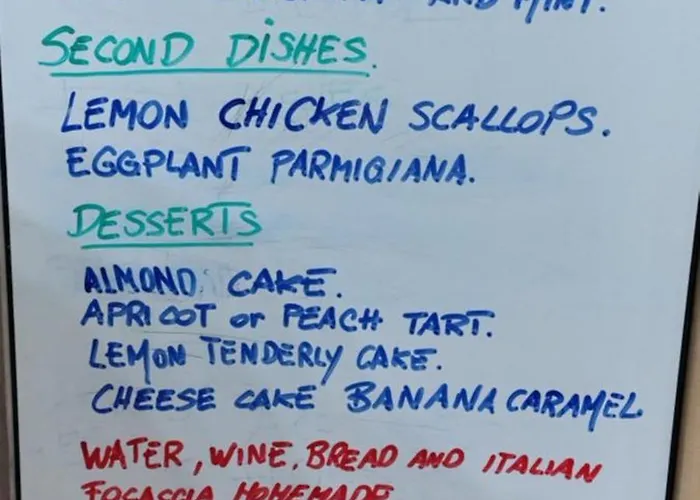 AND MINT.
SECOND DISHES.
LEMON CHICKEN SCALLOPS.
EGGPLANT PARMIGIANA.
DESSERTS
ALMOND CAKE.
APRICOT or PEACH TART.
LEMON TENDERLY CAKE.
CHEESE CAKE BANANA CARAMEL
WATER, WINE, BREAD AND ITALIAN
FOCACCIA HOMEMADE